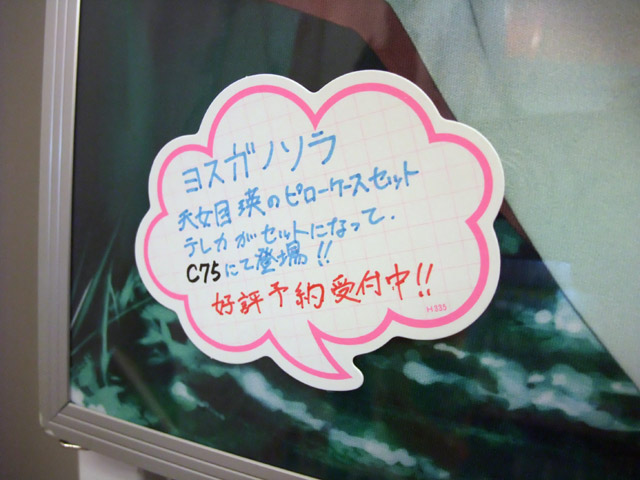 ヨスガノソラ
天女目 瑛のピローケースセット
テレカがセットになって.
C75にて登場!!
好評予約受付中!!
H885